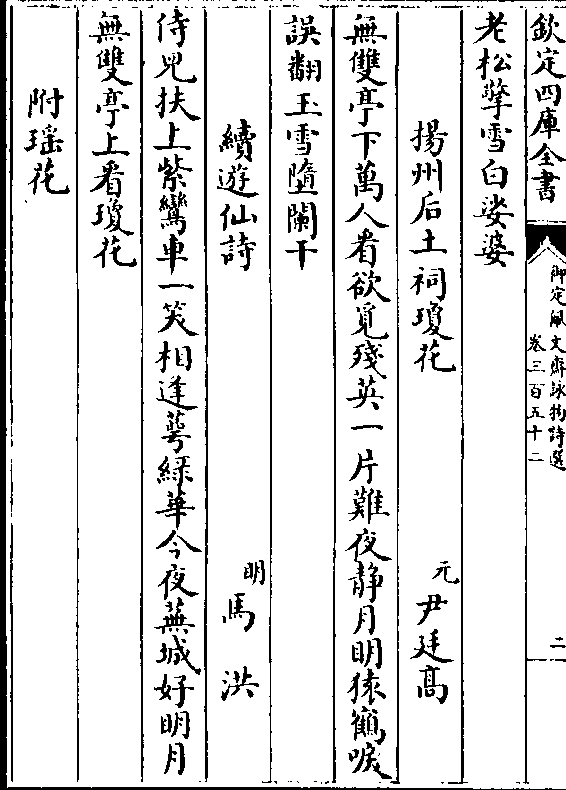 欽定四庫全書
御定佩文齋詠物詩選
卷三百五十二
二
老松擎雪白娑婆
揚州后土祠瓊花 元 尹廷高
無雙亭下萬人看欲覓殘英一片難夜静月明猿鶴唳
誤翻玉雪墮闌干
續遊仙詩 明 馬洪
侍兒扶上紫鸞車一笑相逢萼緑華今夜蕪城好明月
無雙亭上看瓊花
附瑶花